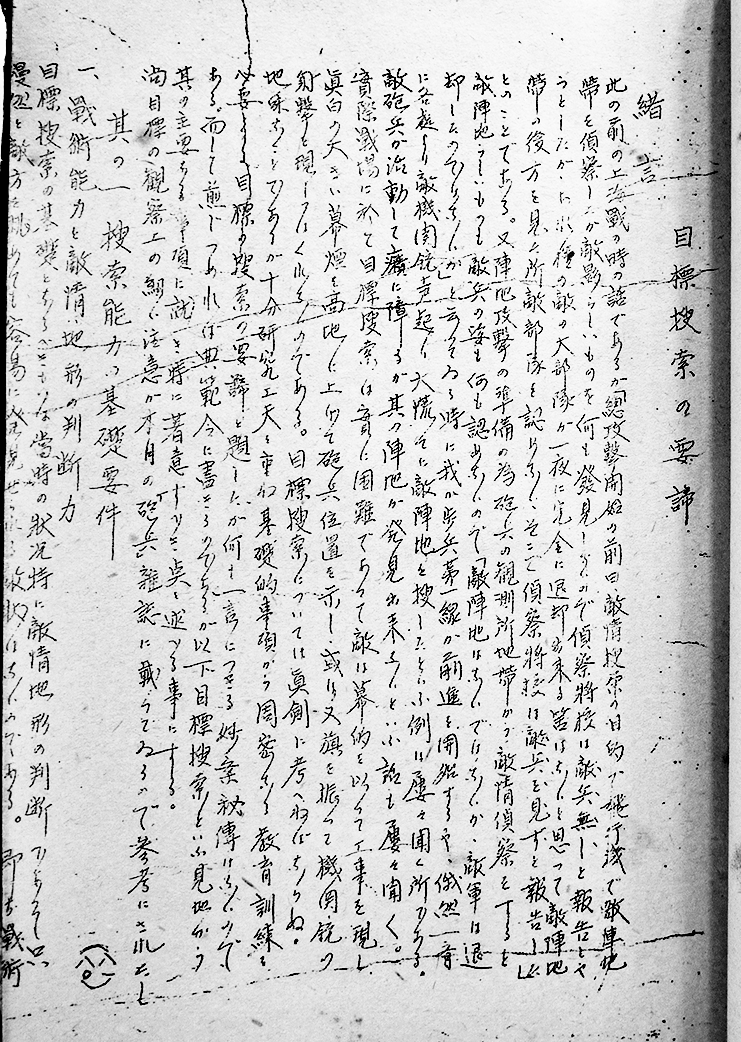 目標搜索の要諦
緒言
此の前の上海戰の時の話であるが總攻擊開始の前日敵情搜索の目的で飛行機で敵陣地
帶を偵察したが敵影らしいものを何も發見しないので偵察將校は敵兵無しと報告しや
うとしたが、お概種の敵の大部隊が一夜に完全に退却出來る筈はないと思って敵陣地
帶の後方を見た所敵部隊を認めない、そこで偵察將校は敵兵を見ずと報告した
とのことである。又陣地攻擊の準備の為砲兵の觀測所地帶から敵情偵察をすると
敵陣地らしいものも敵兵の姿も何も認めないので「敵陣地はないではないか、敵軍は退
却したのではないか」と云ってゐる時に我が步兵第一線が前進を開始するや、俄然一齊
に各處より敵機関銃声起り大慌てに敵陣地を搜したといふ例は屢々聞く所である。
敵砲兵が活動して癪に障るが其の陣地が発見出來ないといふ話も屢々聞く。
實際戰場に於て目標搜索は實に困難であって敵は幕的を以って工事を現し
眞白の大きい幕煙を高地に上げて砲兵位置を示し、或は又旗を振って機関銃の
射擊を現してはくれないのである。目標搜索については眞劍に考へねばならぬ。
地味なことであるが十分研究工夫を重ね基礎的事項から周密なる教育訓練を
必要とする目標搜索の要諦と題したが何も一言につきる妙案秘傳はないので
ある。而して煎じつめれば典範令に盡きるのであるが以下目標搜索といふ見地から
其の主要なる事項に就き特に著意すべき点を述べる事にする。
尚目標の觀察上の細い注意が本月の砲兵雜誌に載ってゐるので參考にされたし
其の一 搜索能力の基礎要件
一、戰術能力と敵情、地形の判斷力
目標搜索の基礎となるべきものは當時の狀況特に敵情地形の判斷であって只
漫然と敵方を眺めても容易に發見せられる敵はないのである。即ち戰術